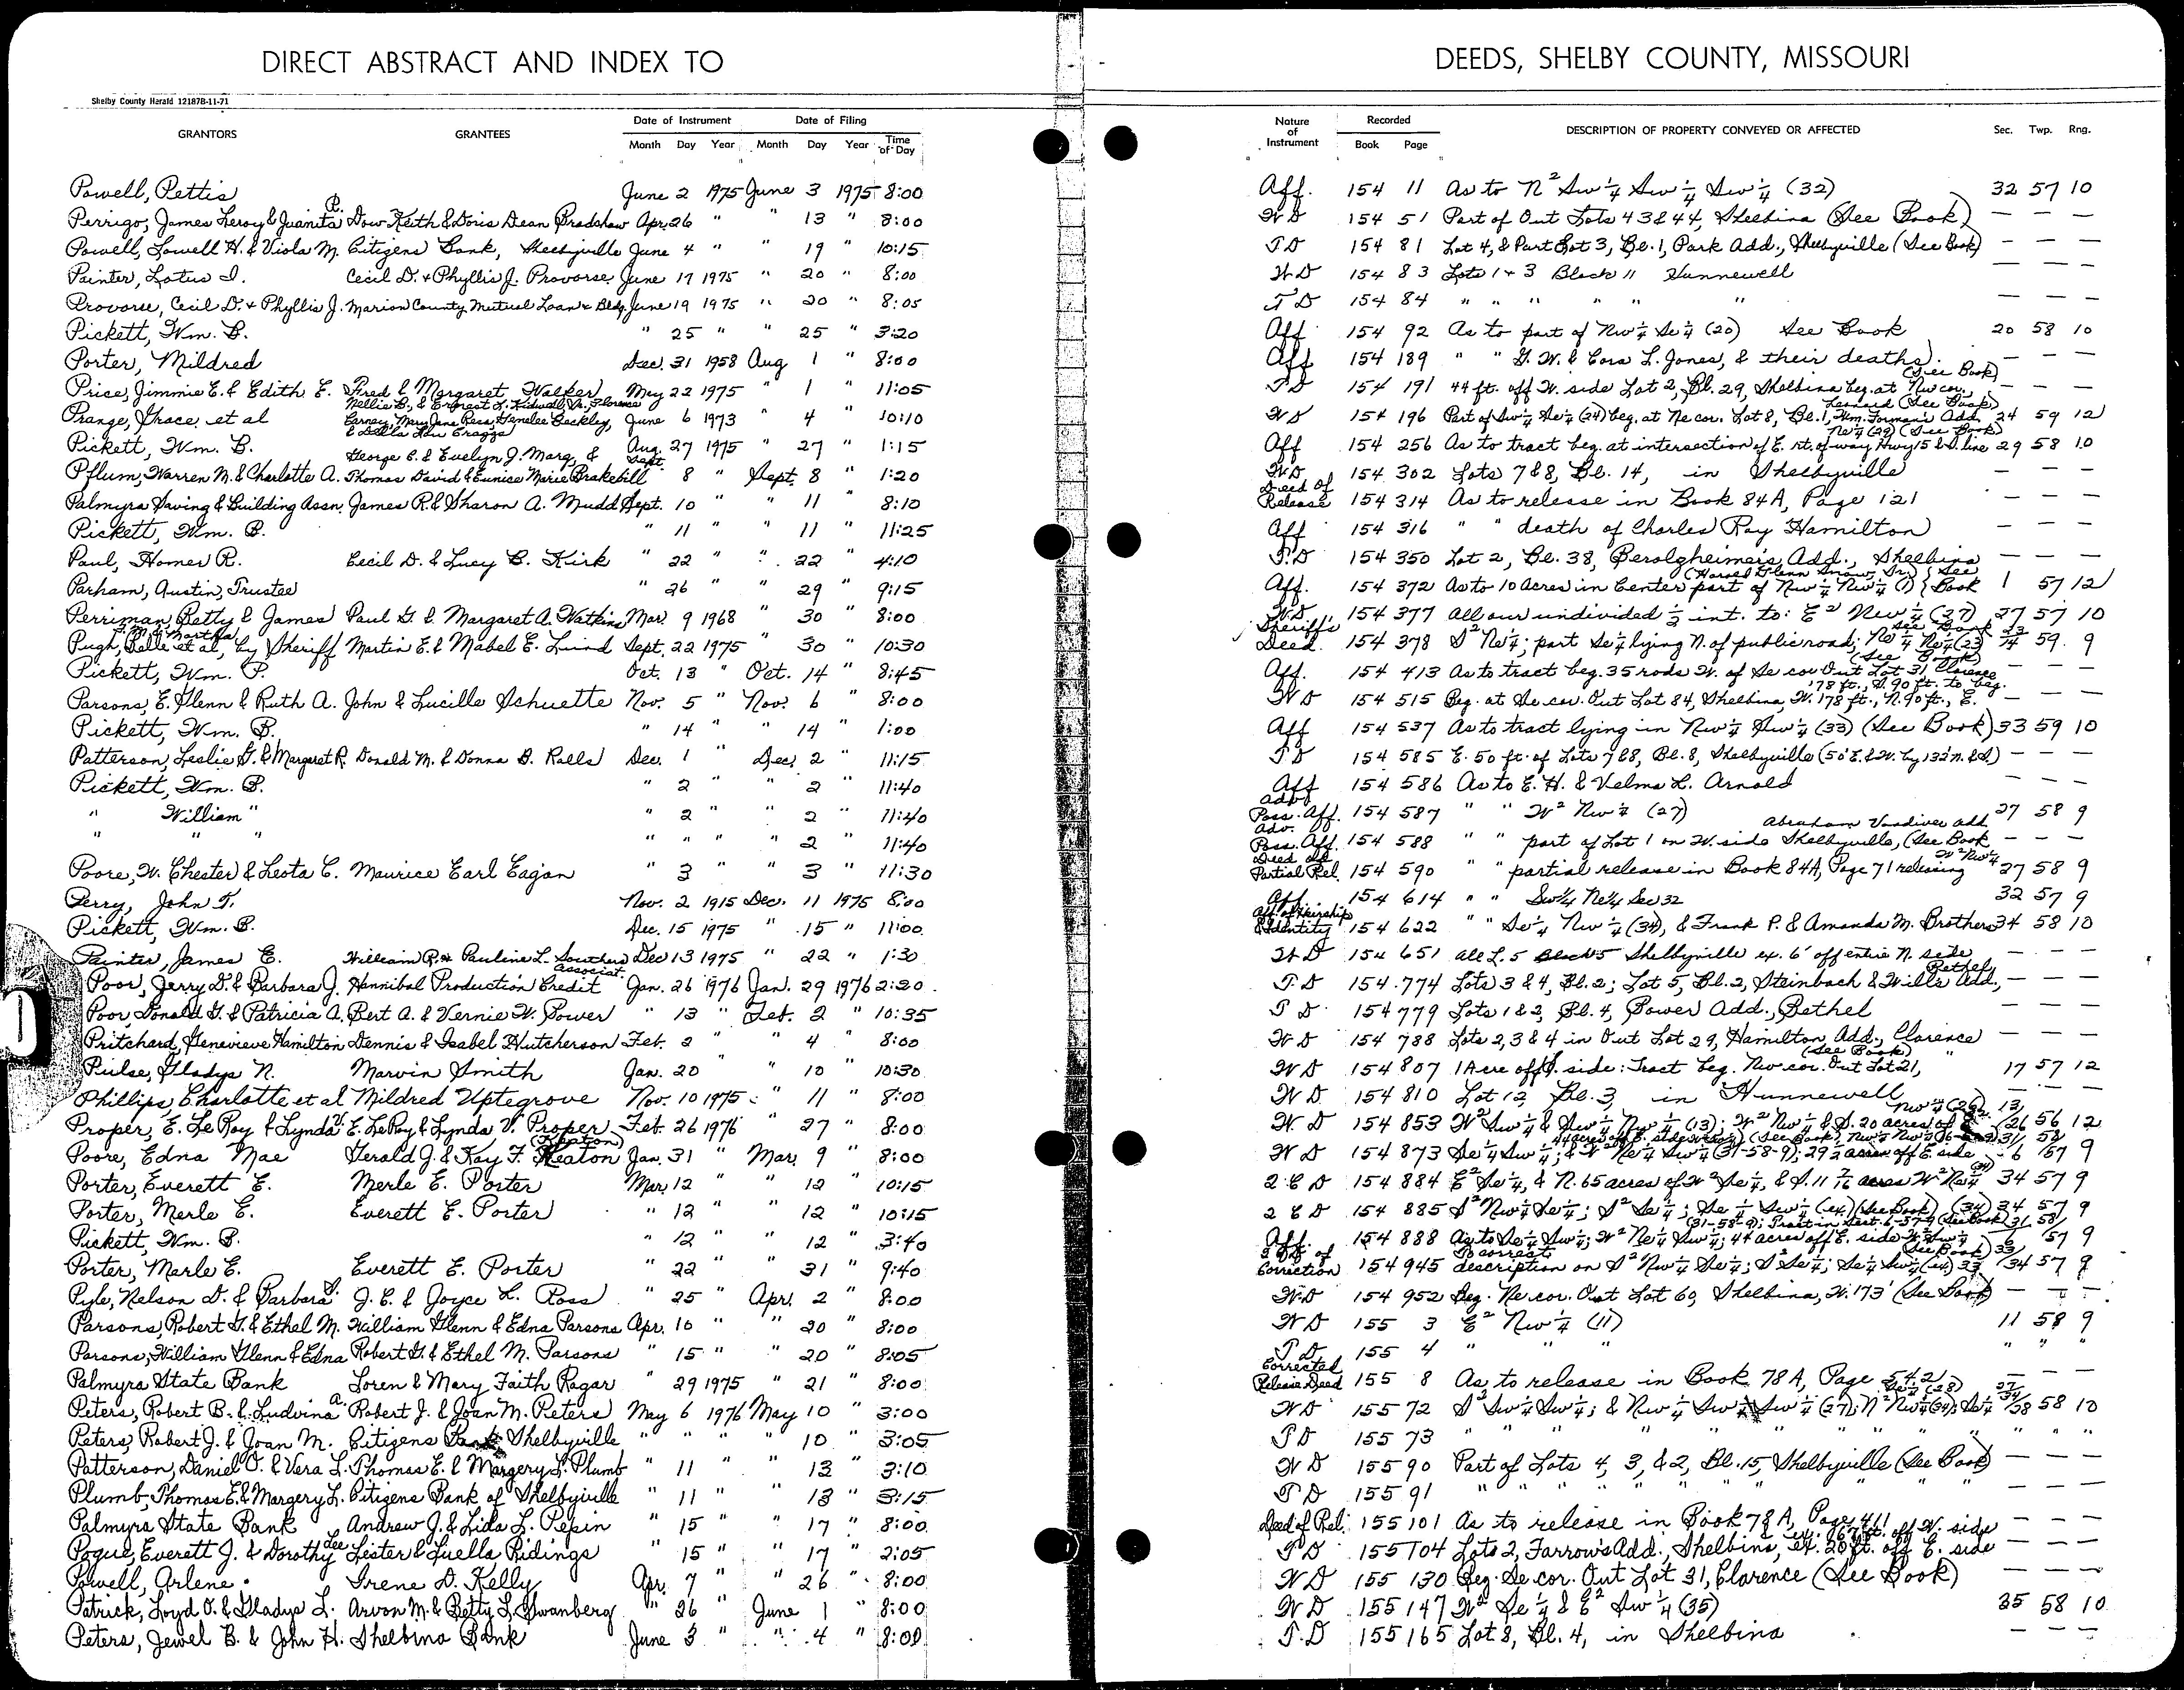 DIRECT ABSTRACT AND INDEX TO DEEDS, SHELBY COUNTY, MISSOURI
Shelby County Herald 12187B-11-71
GRANTORS GRANTEES Date of Instrument Month Day Year Date of Filing Month Day Year Time of Day Nature of Instrument Recorded Book Page DESCRIPTION OF PROPERTY CONVEYED OR AFFECTED Sec. Twp. Rng.
Powell, Pettis June 2 1975 June 3 1975 8:00 Aff. 154 11 As to N² Sw¼ Sw¼ Sw¼ (32) 32 57 10
Perrigo, James Leroy & Juanita R. Dow Keith & Doris Dean Bradshaw Apr. 26 " " 13 " 8:00 WD 154 51 Part of Out Lots 43 & 44, Shelbina (See Book) — — —
Powell, Lowell H. & Viola M. Citizens Bank, Shelbyville June 4 " " 19 " 10:15 TD 154 81 Lot 4, & Part Lot 3, Bl. 1, Park Add., Shelbyville (See Book) — — —
Painter, Lotus I. Cecil D. + Phyllis J. Provorse June 17 1975 " 20 " 8:00 WD 154 83 Lots 1 + 3 Block 11 Hunnewell
Provorse, Cecil D. + Phyllis J. Marion County Mutual Loan & Bldg. June 19 1975 " 20 " 8:05 TD 154 84 " " " " " " — — —
Pickett, Wm. B. " 25 " " 25 " 3:20 Aff 154 92 As to part of Nw¼ Se¼ (20) See Book 20 58 10
Porter, Mildred Dec. 31 1958 Aug 1 " 8:00 Aff 154 189 " " G. W. & Cora L. Jones, & their deaths. — — —
Price, Jimmie E. & Edith E. Fred & Margaret Walker May 22 1975 " 1 " 11:05 TD 154 191 44 ft. off W. side Lot 2, Bl. 29, Shelbina beg. at Nw cor. (See Book) — — —
Prange, Grace, et al Nellie B., & Ernest L. Kidwell, Jr., Florence Carney, Mary Jane Kess, Genelee Beckley, & Della Lou Cragga June 6 1973 " 4 " 10:10 WD 154 196 Part of Sw¼ Se¼ (24) beg. at Ne cor. Lot 8, Bl. 1, Wm. Forman's Add. Leonard (See Book) 24 59 12
Pickett, Wm. B. Aug. 27 1975 " 27 " 1:15 Aff 154 256 As to tract beg. at intersection of E. rt. of way Hwy 15 & S. line Ne¼ (29) (See Book) 29 58 10
Pflum, Warren M. & Charlotte A. George C. & Evelyn J. Marg, & Thomas David & Eunice Marie Brakebill Sept. 8 " Sept. 8 " 1:20 WD 154 302 Lots 7 & 8, Bl. 14, in Shelbyville — — —
Palmyra Saving & Building Assn. James R. & Sharon A. Mudd Sept. 10 " " 11 " 8:10 Deed of Release 154 314 As to release in Book 84A, Page 121 — — —
Pickett, Wm. B. " 11 " " 11 " 11:25 Aff 154 316 " " death of Charles Ray Hamilton — — —
Paul, Homer R. Cecil D. & Lucy C. Kirk " 22 " " 22 " 4:10 T.D 154 350 Lot 2, Bl. 38, Berolzheimer's Add., Shelbina — — —
Parham, Austin, Trustee " 26 " " 29 " 9:15 Aff. 154 372 As to 10 Acres in Center part of Nw¼ Nw¼ (1) (Harold Glenn Snow, Sr.) { See Book 1 57 12
Perriman, Betty & James Paul G. & Margaret A. Watkins Mar. 9 1968 " 30 " 8:00 W.D 154 377 All our undivided ½ int. to: E² Nw¼ (27) 27 57 10
Pugh, Belle et al, by Sheriff Martin E. & Mabel E. Lund Sept. 22 1975 " 30 " 10:30 Sheriff's Deed 154 378 S² Ne¼; part Se¼ lying N. of public road; Ne¼ Ne¼ (23 See Book 23 14 59 9
Pickett, Wm. B. Oct. 13 " Oct. 14 " 8:45 Aff. 154 413 As to tract beg. 35 rods W. of Se cor Out Lot 31, Clarence (See Book) — — —
Parsons, E. Glenn & Ruth A. John & Lucille Schuette Nov. 5 " Nov. 6 " 8:00 WD 154 515 Beg. at Se cor. Out Lot 84, Shelbina, W. 178 ft., N. 90 ft., E. 178 ft., S. 90 ft. to beg. — — —
Pickett, Wm. B. " 14 " " 14 " 1:00 Aff 154 537 As to tract lying in Nw¼ Sw¼ (33) (See Book) 33 59 10
Patterson, Leslie G. & Margaret R. Donald M. & Donna B. Ralls Dec. 1 " Dec. 2 " 11:15 TD 154 585 E. 50 ft. of Lots 7 & 8, Bl. 8, Shelbyville (50' E. & W. by 132' N. & S.) — — —
Pickett, Wm. B. " 2 " " 2 " 11:40 Aff 154 586 As to E. H. & Velma L. Arnold — — —
" William " " 2 " " 2 " 11:40 Adv. Poss. Aff. 154 587 " " W² Nw¼ (27) 27 58 9
" " " " " " " 2 " 11:40 Adv. Poss. Aff. 154 588 " " part of Lot 1 on W. side Shelbyville, (See Book Abraham Vandiver add. — — —
Poore, W. Chester & Leota C. Maurice Earl Eagan " 3 " " 3 " 11:30 Deed of Partial Rel. 154 590 " " partial release in Book 84A, Page 71 releasing W² Nw¼ 27 58 9
Perry, John T. Nov. 2 1915 Dec. 11 1975 8:00 Aff. 154 614 " " Sw¼ Ne¼ Sec 32 32 57 9
Pickett, Wm. B. Dec. 15 1975 " 15 " 11:00 Aff. of Heirship & Identity 154 622 " " Se¼ Nw¼ (34), & Frank P. & Amanda M. Brothers 34 58 10
Painter, James E. William R. + Pauline L. Southers Dec 13 1975 " 22 " 1:30 WD 154 651 All L. 5 Block 5 Shelbyville ex. 6' off entire N. side — — —
Poor, Jerry D. & Barbara J. Hannibal Production Credit Associat. Jan. 26 1976 Jan. 29 1976 2:20 T.D 154 774 Lots 3 & 4, Bl. 2; Lot 5, Bl. 2, Steinbach & Wills Add., Bethel — — —
Poor, Donald G. & Patricia A. Bert A. & Vernie W. Power " 13 " Feb. 2 " 10:35 TD 154 779 Lots 1 & 2, Bl. 4, Power Add., Bethel
Pritchard, Genevieve Hamilton Dennis & Isabel Hutcherson Feb. 2 " " 4 " 8:00 WD 154 788 Lots 2, 3 & 4 in Out Lot 29, Hamilton Add., Clarence — — —
Pulse, Gladys N. Marvin Smith Jan. 20 " 10 " 10:30 WD 154 807 1 Acre off S. side: Tract beg. Nw cor. Out Lot 21, (See Book) " 17 57 12
Phillips, Charlotte et al Mildred Uptegrove Nov. 10 1975 " 11 " 8:00 WD. 154 810 Lot 12, Bl. 3, in Hunnewell — — —
Proper, E. LeRoy & Lynda V. E. LeRoy & Lynda V. Proper Feb. 26 1976 " 27 " 8:00 W.D 154 853 W² Sw¼ & Sw¼ Nw¼ (13); W² Nw¼ & S. 20 acres of Nw¼ (26) 13 26 56 12
Poore, Edna Mae Gerald J. & Kay F. Keaton (Keaton) Jan. 31 " Mar. 9 " 8:00 WD 154 873 Se¼ Sw¼; & W² Ne¼ Sw¼ (31-58-9); 29½ acres off E. side (See Book) 31 58 6 57 9
Porter, Everett E. Merle E. Porter Mar. 12 " " 12 " 10:15 2 C D 154 884 E² Se¼, & N. 65 acres of W² Se¼, & S. 11 acres W² Ne¼ (34) 34 57 9
Porter, Merle E. Everett E. Porter " 12 " " 12 " 10:15 2 C D 154 885 S² Nw¼ Se¼; S² Se¼; Se¼ Sw¼ (ex) (See Book) (34) 34 57 9
Pickett, Wm. B. " 12 " " 12 " 3:40 Aff. 154 888 As to Se¼ Sw¼; W² Ne¼ Sw¼; 44 acres off E. side (31-58-9); Tract in Sect. 6-57-9 (See Book) 31 58 6 57 9
Porter, Merle E. Everett E. Porter " 22 " " 31 " 9:40 Correction 154 945 To correct description on S² Nw¼ Se¼; S² Se¼; Se¼ Sw¼ (See Book) 33 34 57 9
Pyle, Nelson D. & Barbara J. E. & Joyce L. Ross " 25 " Apr. 2 " 8:00 W.D 154 952 Beg. Ne cor. Out Lot 60, Shelbina, W. 173' (See Book) — — —
Parsons, Robert G. & Ethel M. William Glenn & Edna Parsons Apr. 10 " " 20 " 8:00 WD 155 3 E² Nw¼ (11) 11 58 9
Parsons, William Glenn & Edna Robert G. & Ethel M. Parsons " 15 " " 20 " 8:05 TD 155 4 " " " " " "
Palmyra State Bank Loren & Mary Faith Ragar " 29 1975 " 21 " 8:00 Corrected Release Deed 155 8 As to release in Book 78A, Page 542 — —
Peters, Robert B. & Ludvina A. Robert J. & Joan M. Peters May 6 1976 May 10 " 3:00 WD 155 72 S² Sw¼ Sw¼; & Nw¼ Sw¼ Sw¼ (27); N² Nw¼ (34); Se¼ Se¼ (28) 27 34 28 58 10
Peters, Robert J. & Joan M. Citizens Bank Shelbyville " " " " 10 " 3:05 TD 155 73 " " " " " " " " " "
Patterson, Daniel O. & Vera L. Thomas E. & Margery L. Plumb " 11 " " 13 " 3:10 WD 155 90 Part of Lots 4, 3, & 2, Bl. 15, Shelbyville (See Book) — — —
Plumb, Thomas E. & Margery L. Citizens Bank of Shelbyville " 11 " " 13 " 3:15 TD 155 91 " " " " " " " " — — —
Palmyra State Bank Andrew J. & Lida L. Pepin " 15 " " 17 " 8:00 Deed of Rel. 155 101 As to release in Book 78A, Page 411 — — —
Pogue, Everett J. & Dorothy Lee Lester & Luella Ridings " 15 " " 17 " 2:05 TD 155 104 Lots 2, Farrow's Add., Shelbina, ex. 20 ft. off E. side ex. 167 ft. off W. side — — —
Powell, Arlene Irene D. Kelly Apr. 7 " " 26 " 8:00 WD 155 130 Beg. Se cor. Out Lot 31, Clarence (See Book) — — —
Patrick, Loyd O. & Gladys L. Arvon M. & Betty L. Swanberg " 26 " June 1 " 8:00 WD 155 147 W² Se¼ & E² Sw¼ (35) 35 58 10
Peters, Jewel B. & John H. Shelbina Bank June 3 " " 4 " 8:00 T.D 155 165 Lot 8, Bl. 4, in Shelbina — — —